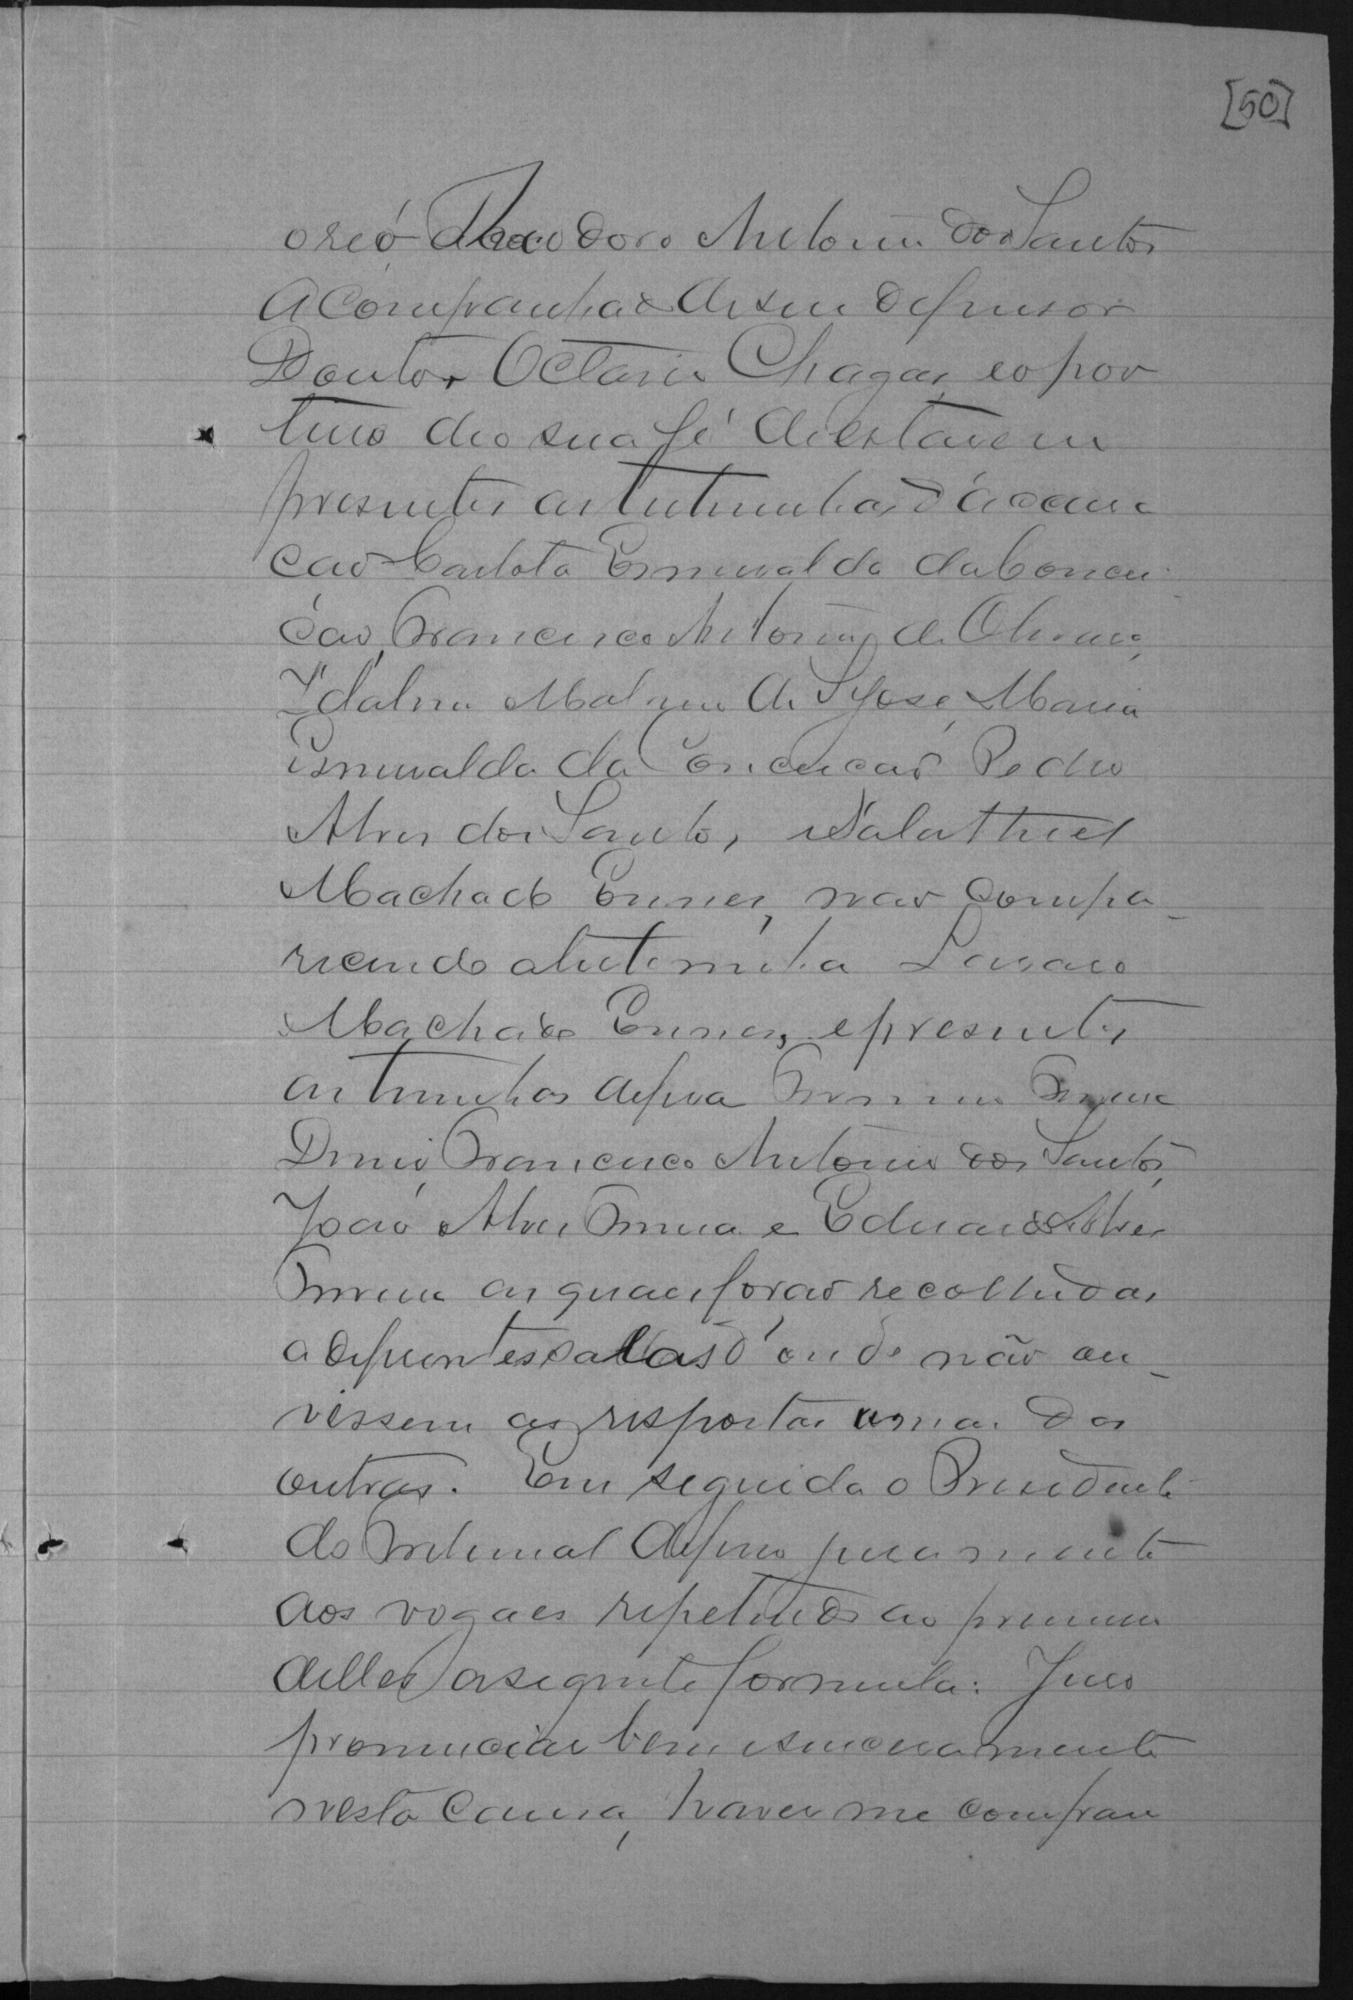 [50]
o reo Theodoro Antonio dos Santos
acompanhado de seu defensor
Doutor Octavio Chagas, e o por
teiro deo sua fé de estarem
presentes as testemunhas d'accusa
ção Carlota Esmeralda da Concei
ção, Francisco Antonio de Oliveira,
Idalina de S José, Maria
Esmeralda da Conceição Pedro
Alves dos Santos, Salathiel
Machado, não compa_
recendo a testemunha Lazaro
Machado, e presentes
as testemunhas defesa
Francisco Antonio dos Santos,
João Alves e Eduardo Alves
as quaes forão recolhidas
a differentes salas d'onde não ou_
vissem as respostas umas das
outras. Em seguida o Presidente
do Tribunal deferio juramento
aos vogaes repetindo ao primeiro
delles a seguinte formula: Juro
pronunciar bem e sinceramente
nesta causa, haver me com fran